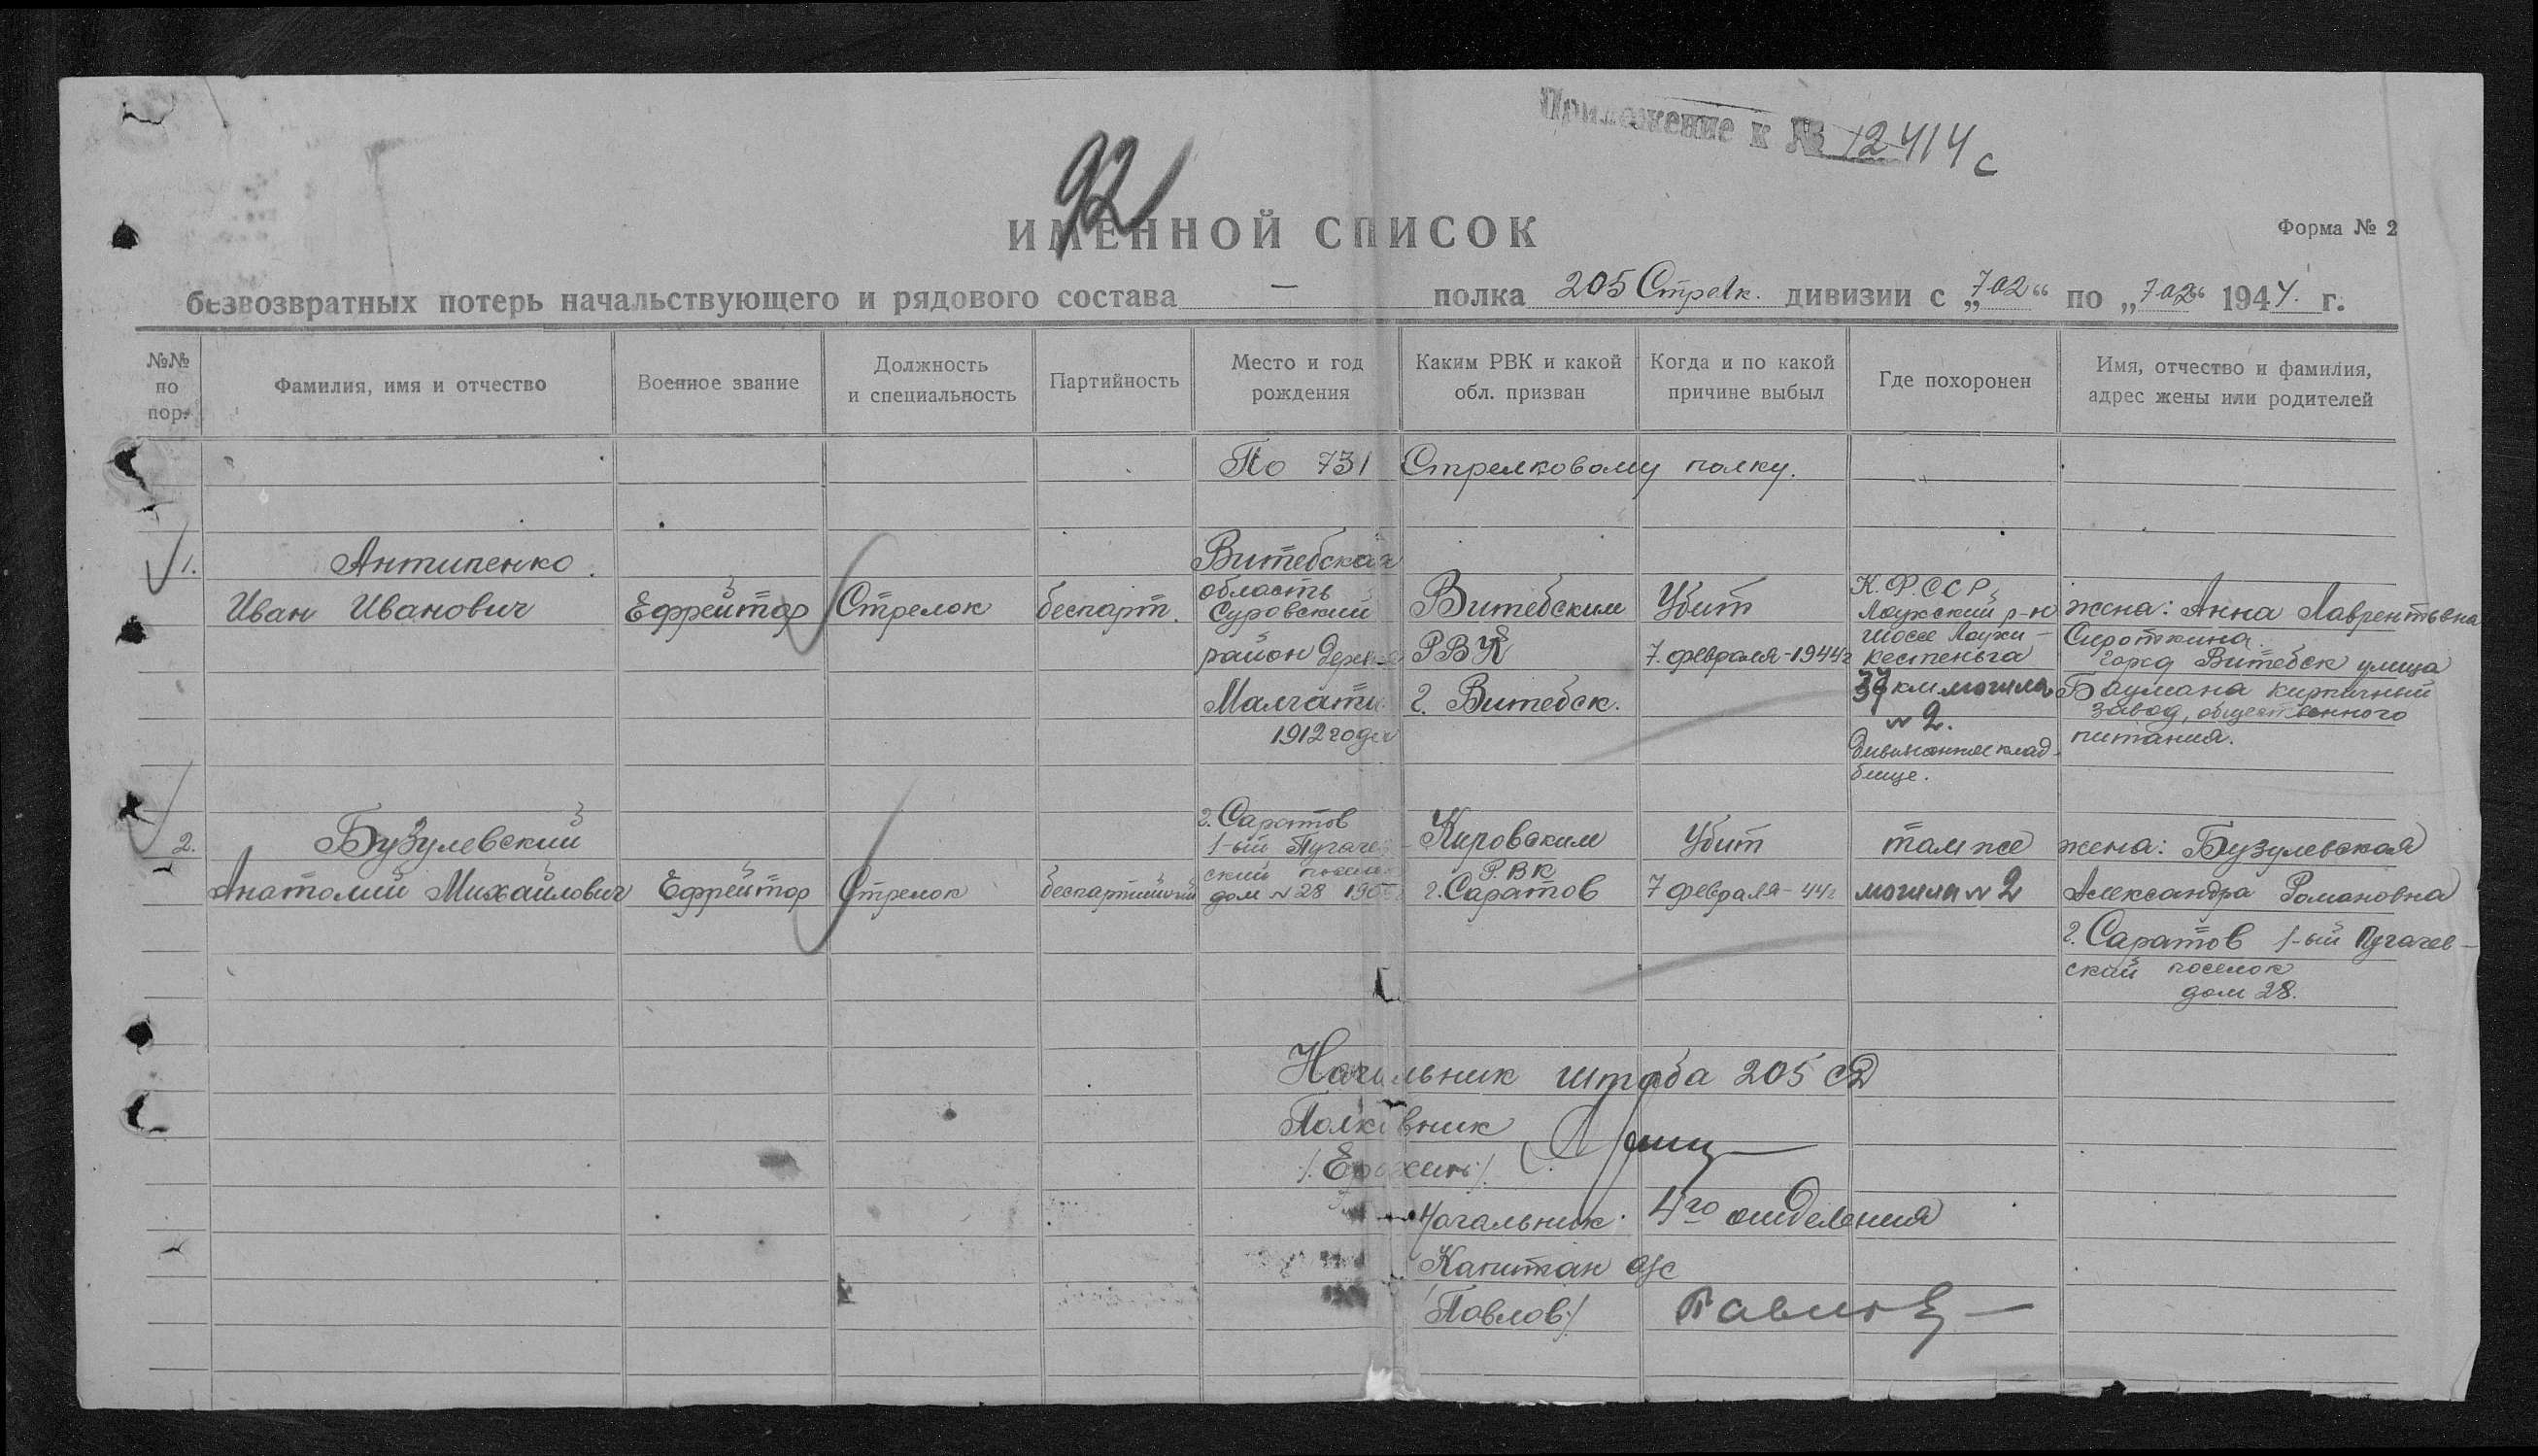 Приложение к № 12414с
92
ИМЕННОЙ СПИСОК
Форма № 2
безвозвратных потерь начальствующего и рядового состава — полка 205 Стрелк. дивизии с „7.02“ по „7.02“ 1944. г.
№№ по пор.
Фамилия, имя и отчество
Военное звание
Должность и специальность
Партийность
Место и год рождения
Каким РВК и какой обл. призван
Когда и по какой причине выбыл
Где похоронен
Имя, отчество и фамилия, адрес жены или родителей
По 731 Стрелковому полку.
1.
Антипенко
Иван Иванович
Ефрейтор
Стрелок
беспарт.
Витебская
область
Суровский
район
1912 года
Витебским
РВК
г. Витебск.
Убит
7. февраля-1944г
К.Ф.ССР,
Лоухский р-н
шоссе Лоухи-
кестеньга
км. могила
№ 2.
дивизионное клад-
бище.
жена: Анна Лаврентьевна
Сироткина.
город Витебск улица
Баумана кирпичный
завод, общественного
питания.
2.
Бузулевский
Анатолий Михайлович
Ефрейтор
Стрелок
беспартийный
г. Саратов
1-ый Пугачев-
ский поселок
дом № 28
Кировским
РВК
г. Саратов
Убит
7 февраля-44г
там же
могила № 2
жена: Бузулевская
Александра Романовна
г. Саратов 1-ый Пугачев-
ский поселок
дом 28.
Начальник штаба 205 СД
Полковник
Начальник 4го отделения
Капитан а/с
/Павлов/ Павлов